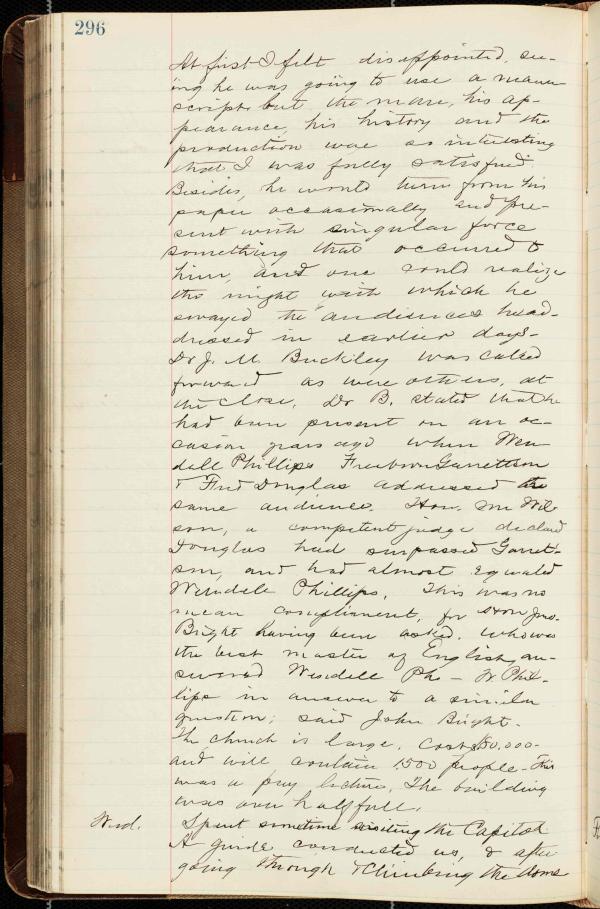 296
At first I felt disappointed, see-
ing he was going to use a manu-
script, but the man, his ap-
pearance, his history and the
production were so interesting
that I was fully satisfied.
Besides, he would turn from his
paper occasionally and pre-
sent with singular force
something that occurred to
him, and one could realize
the might with which he
swayed the audiences he ad-
dressed in earlier days.
Dr J. M. Buckley was called
forward as were others, at
the close. Dr B. stated that he
had been present on an oc-
casion years ago when Wen-
dell Phillips Freeborn Garrettson
& Fred Douglas addressed the
same audience. Hon. Mr Wil-
son, a competent judge declared
Douglas had surpassed Garret-
son, and had almost equaled
Wendell Phillips. This was no
mean compliment, for Hon Jno.
Bright having been asked, who was
the best master of English, an-
swered Wendell Phi - W. Phil-
lips in answer to a similar
question; said John Bright.
The church is large. Cost $150,000-
and will contain 1500 people. This
was a pay lecture. The building
was over half full.
Wed. Spent sometime visiting the Capitol
A guide conducted us, & after
going through & climbing the dome